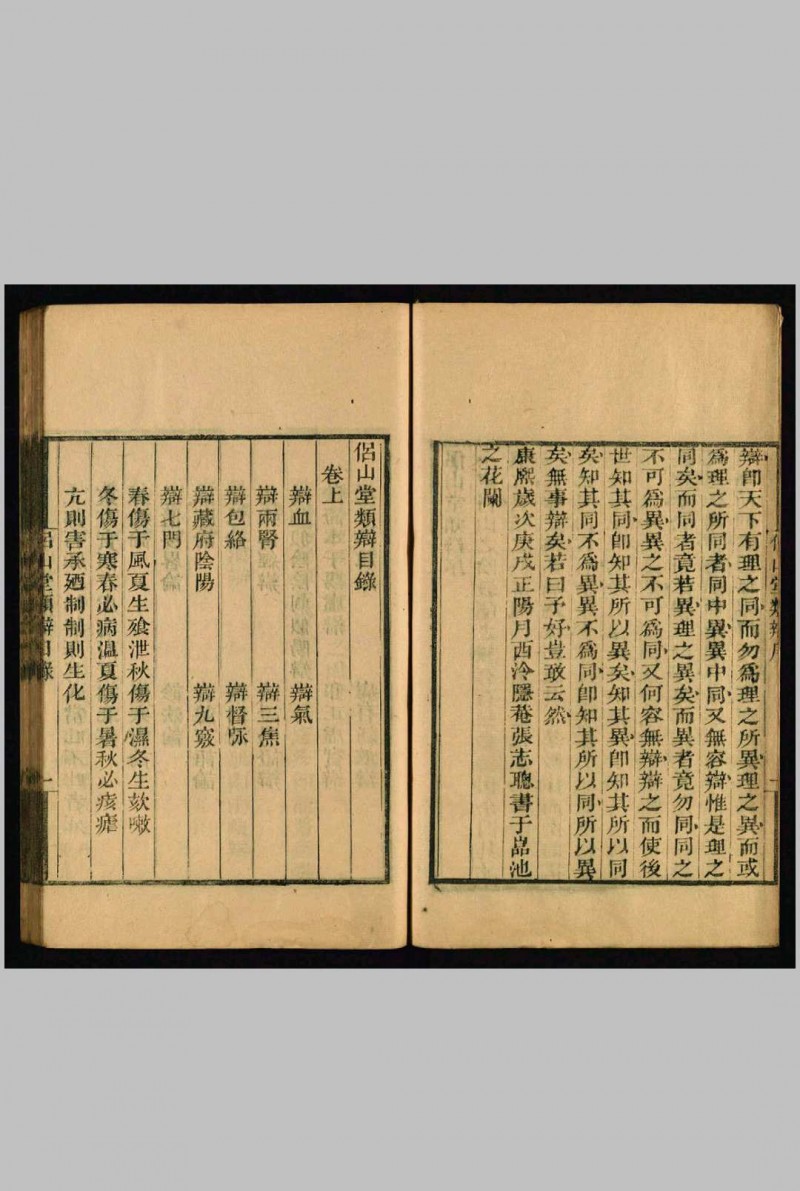 侶山堂類辯序
辯卽天下有理之同而勿爲理之所異理之異而或
爲理之所同者同中異異中同又無容辯惟是理之
同矣而同者竟若異理之異矣而異者竟勿同同之
不可爲異異之不可爲同又何容無辯辯之而使後
世知其同卽知其所以異矣知其異卽知其所以同
矣知其同不爲異異不爲同卽知其所以同所以異
矣無事辯矣若曰予好豈敢云然
康熙歲次庚戌正陽月西泠隱菴張志聰書于嵓池
之花闌
侶山堂類辯目錄
卷上
辯血 辯氣
辯兩腎 辯三焦
辯包絡 辯督脉
辯藏府陰陽 辯九竅
辯七門
春傷于風夏生飱泄秋傷于濕冬生欬嗽
冬傷于寒春必病溫夏傷于暑秋必痎瘧
亢則害承廼制制則生化
侶山堂類辯目錄 一